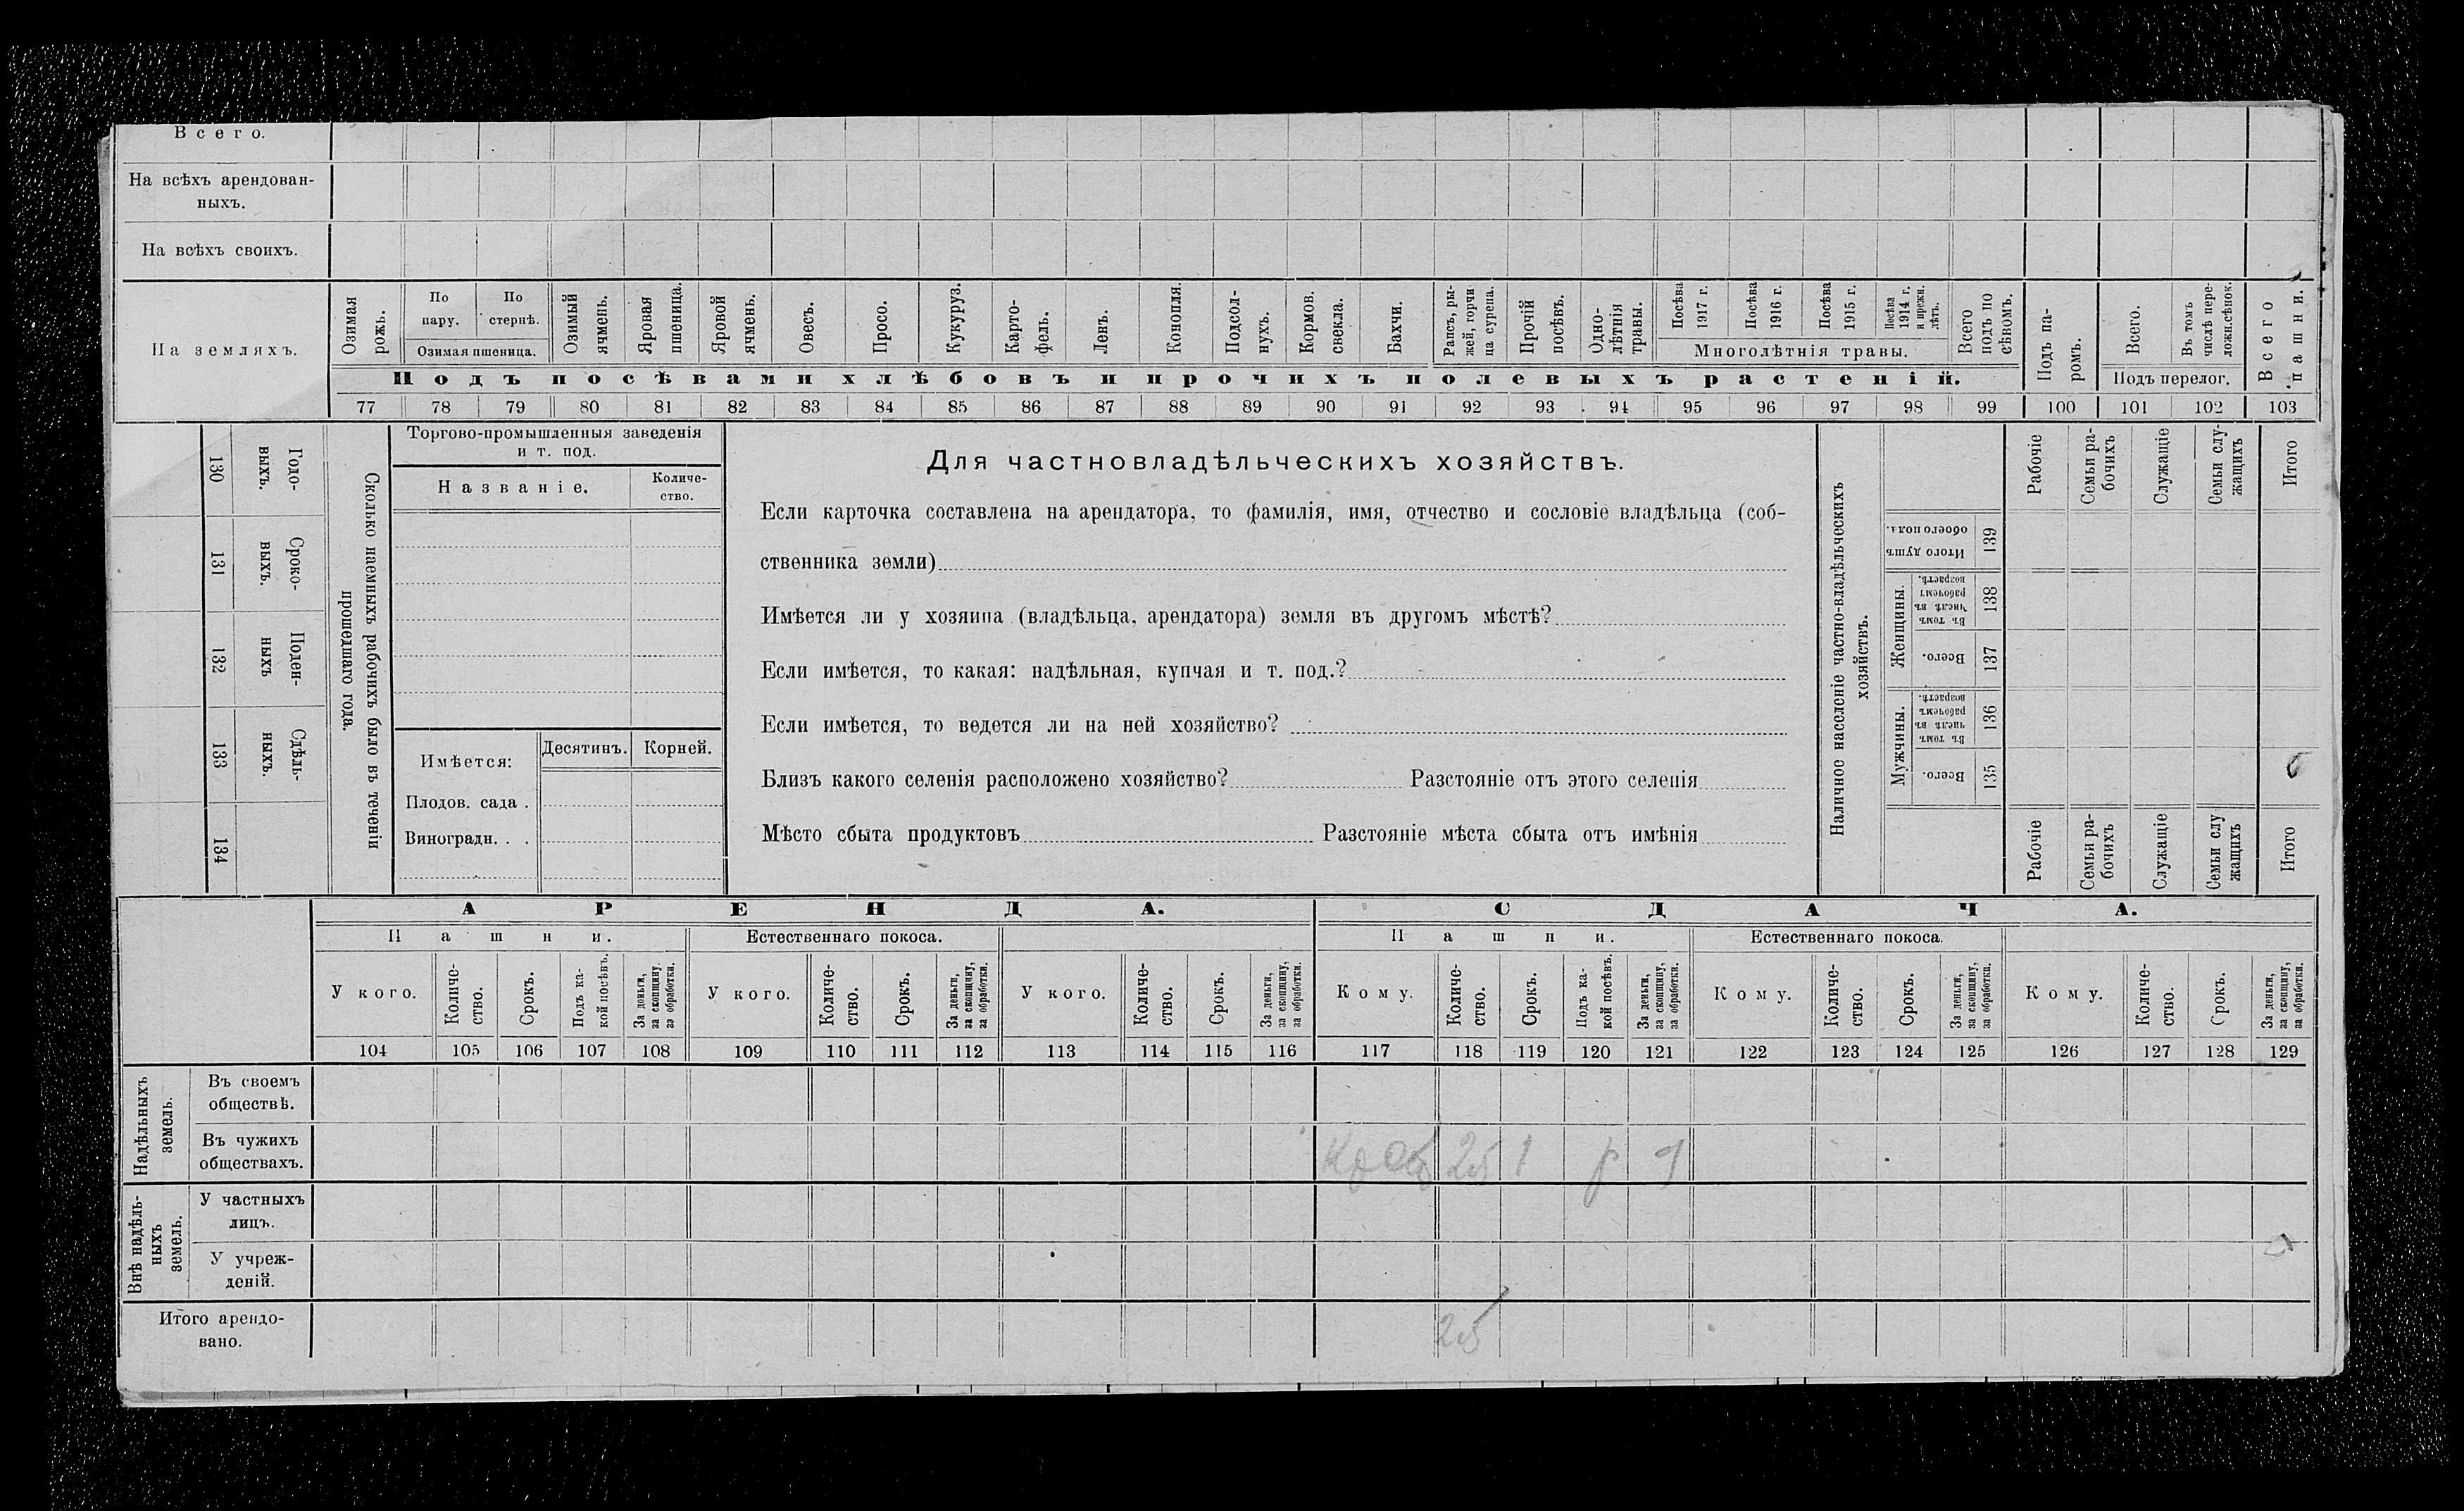 Всего.
На всѣхъ арендован-
ныхъ.
На всѣхъ своихъ.
На земляхъ.
Озимая рожь.
По пару.
По стернѣ.
Озимая пшеница.
Озимый ячмень.
Яровая пшеница.
Яровой ячмень.
Овесъ.
Просо.
Кукуруз.
Карто-
фель.
Ленъ.
Конопля.
Подсол-
нухъ.
Кормов. свекла.
Бахчи.
Рапсъ, ры-
жей, горчи
ца сурепа.
Прочій посѣвъ.
Одно-
лѣтнія травы.
Посѣва 1917 г.
Посѣва 1916 г.
Посѣва 1915 г.
Посѣва 1914 г. и прежн. лѣтъ.
Многолѣтнія травы.
Всего подъ по
сѣвомъ.
Подъ посѣвами хлѣбовъ и прочихъ полевыхъ растеній.
Подъ па-
ромъ.
Всего.
Въ томъ числѣ пере-
ложн.сѣнок.
Подъ перелог.
Всего пашни.
77 78 79 80 81 82 83 84 85 86 87 88 89 90 91 92 93 94 95 96 97 98 99 100 101 102 103
130
Голо-
выхъ.
131
Сроко-
выхъ.
132
Поден-
ныхъ
133
Сдѣль-
ныхъ.
134
Сколько наемныхъ рабочихъ было въ теченіи
прошедшаго года.
Торгово-промышленныя заведенія
и т. под.
Названіе.
Количе-
ство.
Имѣется:
Десятинъ.
Корней.
Плодов. сада .
Виноградн. . .
Для частновладѣльческихъ хозяйствъ.
Если карточка составлена на арендатора, то фамилія, имя, отчество и сословіе владѣльца (соб-
ственника земли)
Имѣется ли у хозяина (владѣльца, арендатора) земля въ другомъ мѣстѣ?
Если имѣется, то какая: надѣльная, купчая и т. под.?
Если имѣется, то ведется ли на ней хозяйство?
Близъ какого селенія расположено хозяйство? Разстояніе отъ этого селенія
Мѣсто сбыта продуктовъ Разстояніе мѣста сбыта отъ имѣнія
Наличное населеніе частно-владѣльческихъ
хозяйствъ.
Рабочіе
Семьи ра-
бочихъ
Служащіе
Семьи слу-
жащихъ
Итого
Итого душъ
обоего пола.
139
Женщины.
Въ томъ числѣ въ рабочемъ возрастѣ.
138
Всего.
137
Мужчины.
Въ томъ числѣ въ рабочемъ возрастѣ.
136
Всего.
135
Рабочіе
Семьи ра-
бочихъ
Служащіе
Семьи слу
жащихъ
Итого
АРЕНДА.
СДАЧА.
Пашни.
Естественнаго покоса.
Пашни.
Естественнаго покоса.
У кого.
Количе-
ство.
Срокъ.
Подъ ка-
кой посѣвъ.
За деньги,
за скопщину,
за обработки.
У кого.
Количе-
ство.
Срокъ.
За деньги,
за скопщину,
за обработки.
У кого.
Количе-
ство.
Срокъ.
За деньги,
за скопщину,
за обработки.
Кому.
Количе-
ство.
Срокъ.
Подъ ка-
кой посѣвъ.
За деньги,
за скопщину,
за обработки.
Кому.
Количе-
ство.
Срокъ.
За деньги,
за скопщину,
за обработки.
Кому.
Количе-
ство.
Срокъ.
За деньги,
за скопщину,
за обработки.
104 105 106 107 108 109 110 111 112 113 114 115 116 117 118 119 120 121 122 123 124 125 126 127 128 129
Надѣльныхъ
земель.
Въ своемъ
обществѣ.
Въ чужихъ
обществахъ.
25 1
Внѣ надѣль-
ныхъ
земель.
У частныхъ
лицъ.
У учреж-
деній.
Итого арендо-
вано.
25